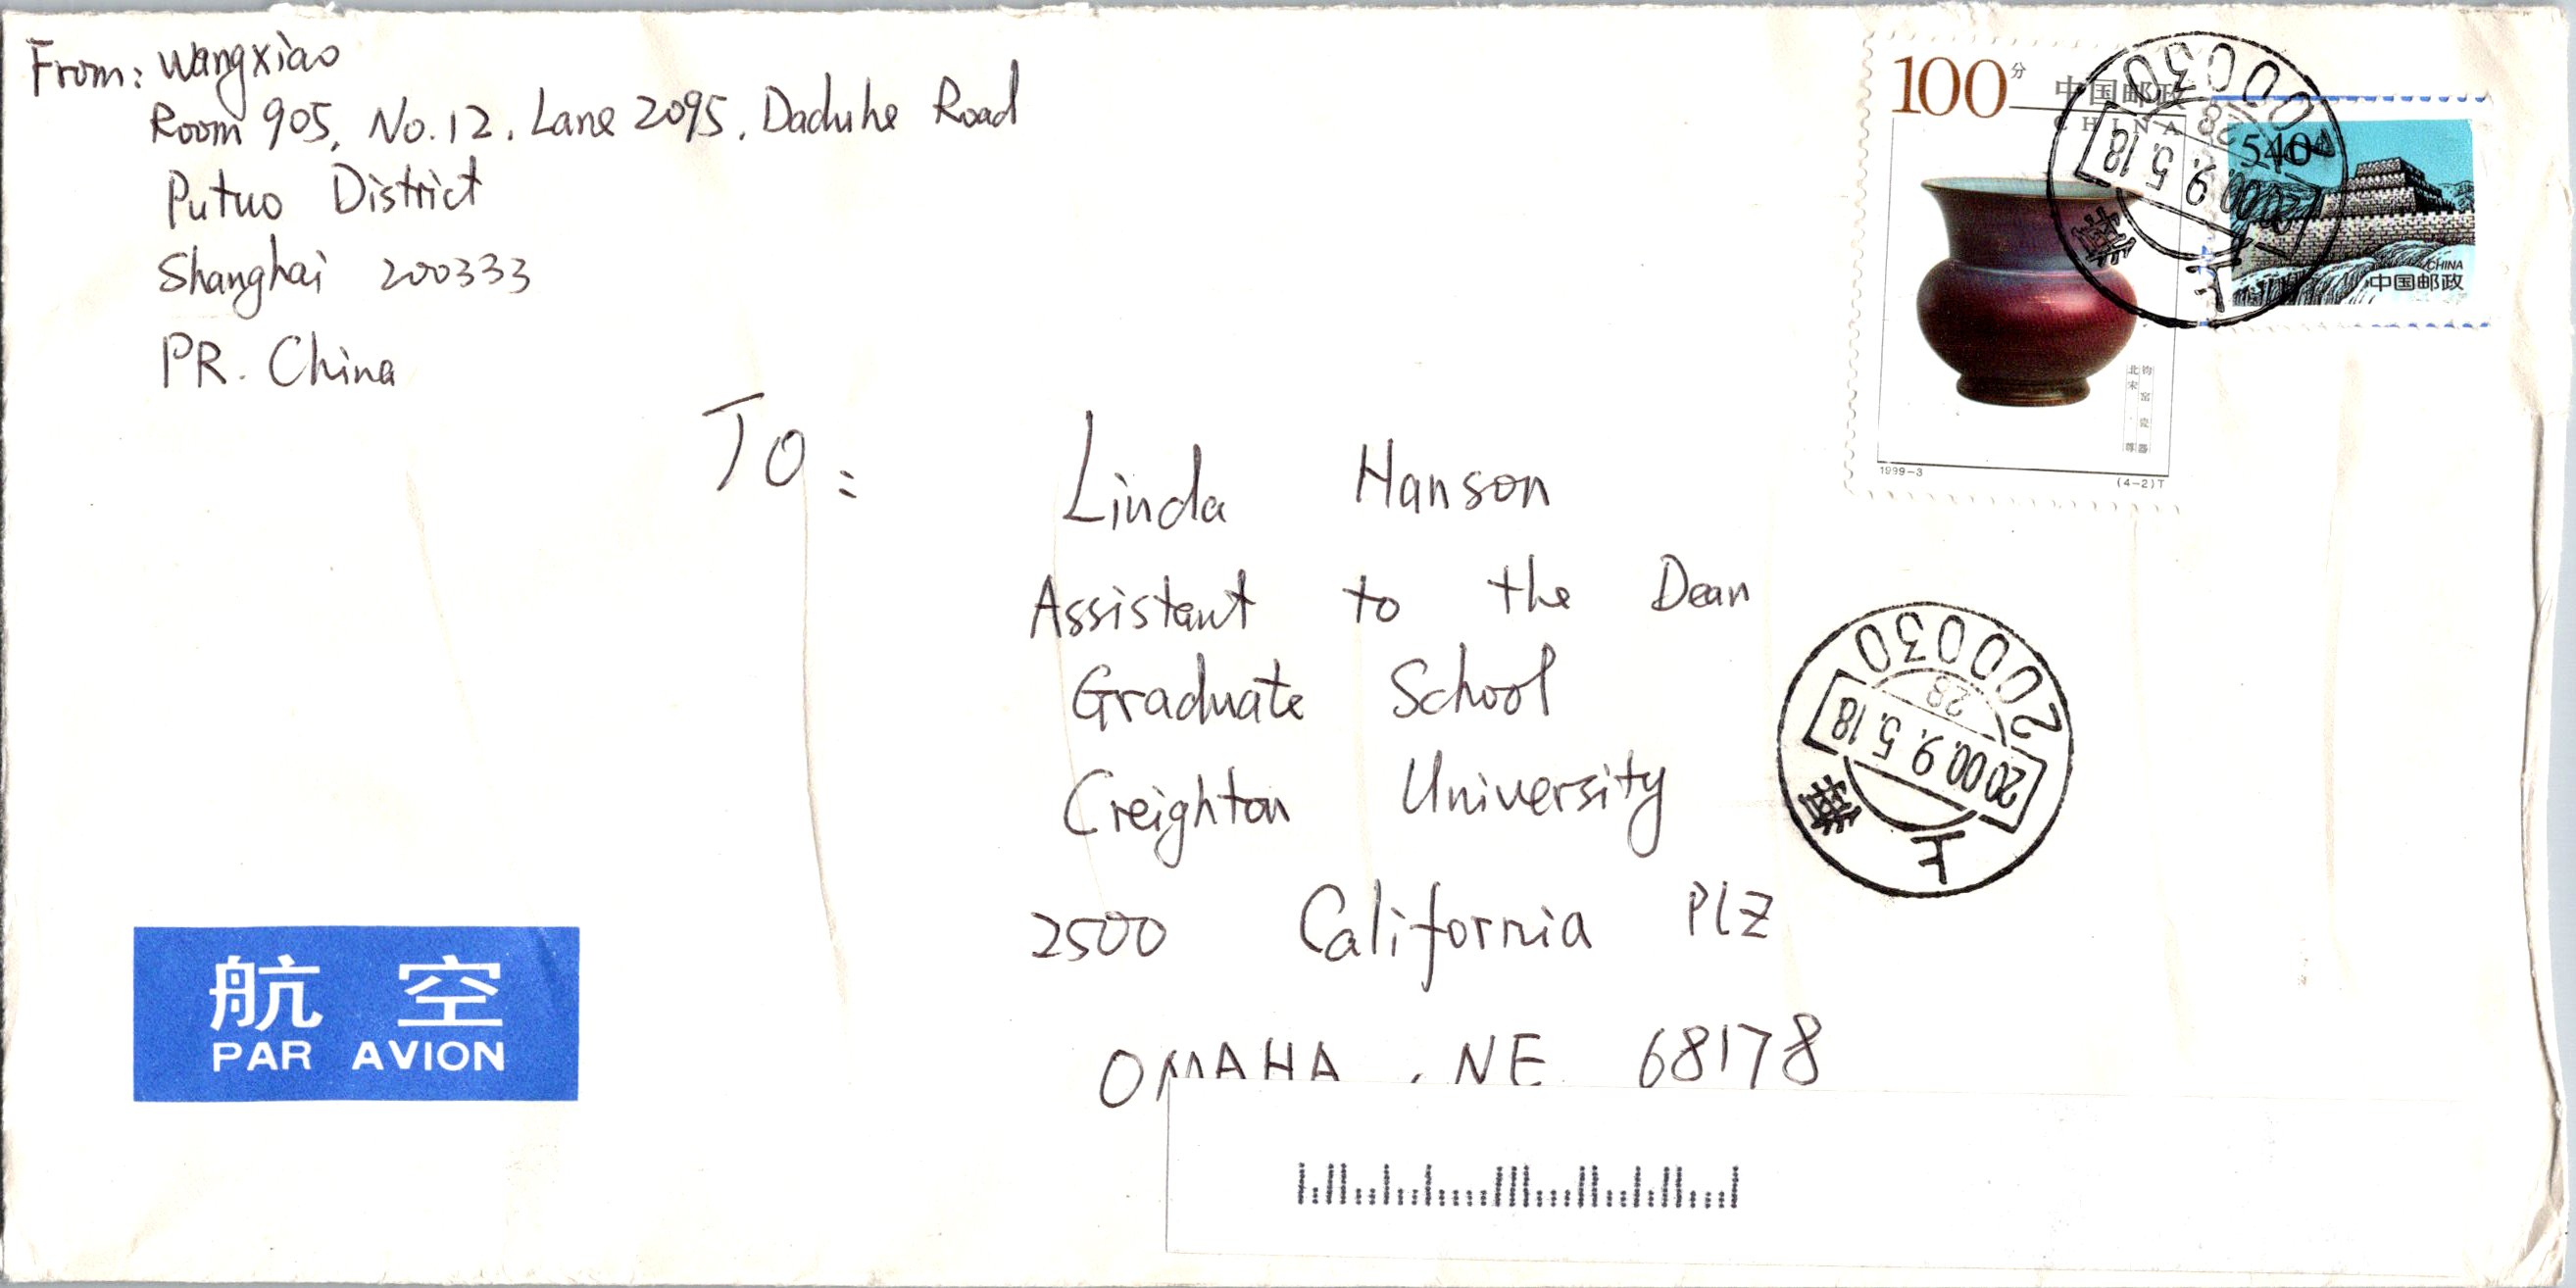 From: Wangxiao
Room 905, No.12, Lane 2095, Daduhe Road
Putuo District
Shanghai 200333
PR. China
100分 中国邮政
CHINA
北宋·尊
钧窑瓷器
1999-3 (4-2)T
540
CHINA
中国邮政
200030
28
2000.9.5.18
上海
To:
Linda Hanson
Assistant to the Dean
Graduate School
Creighton University
2500 California PLZ
OMAHA, NE 68178
200030
28
2000.9.5.18
上海
航空
PAR AVION